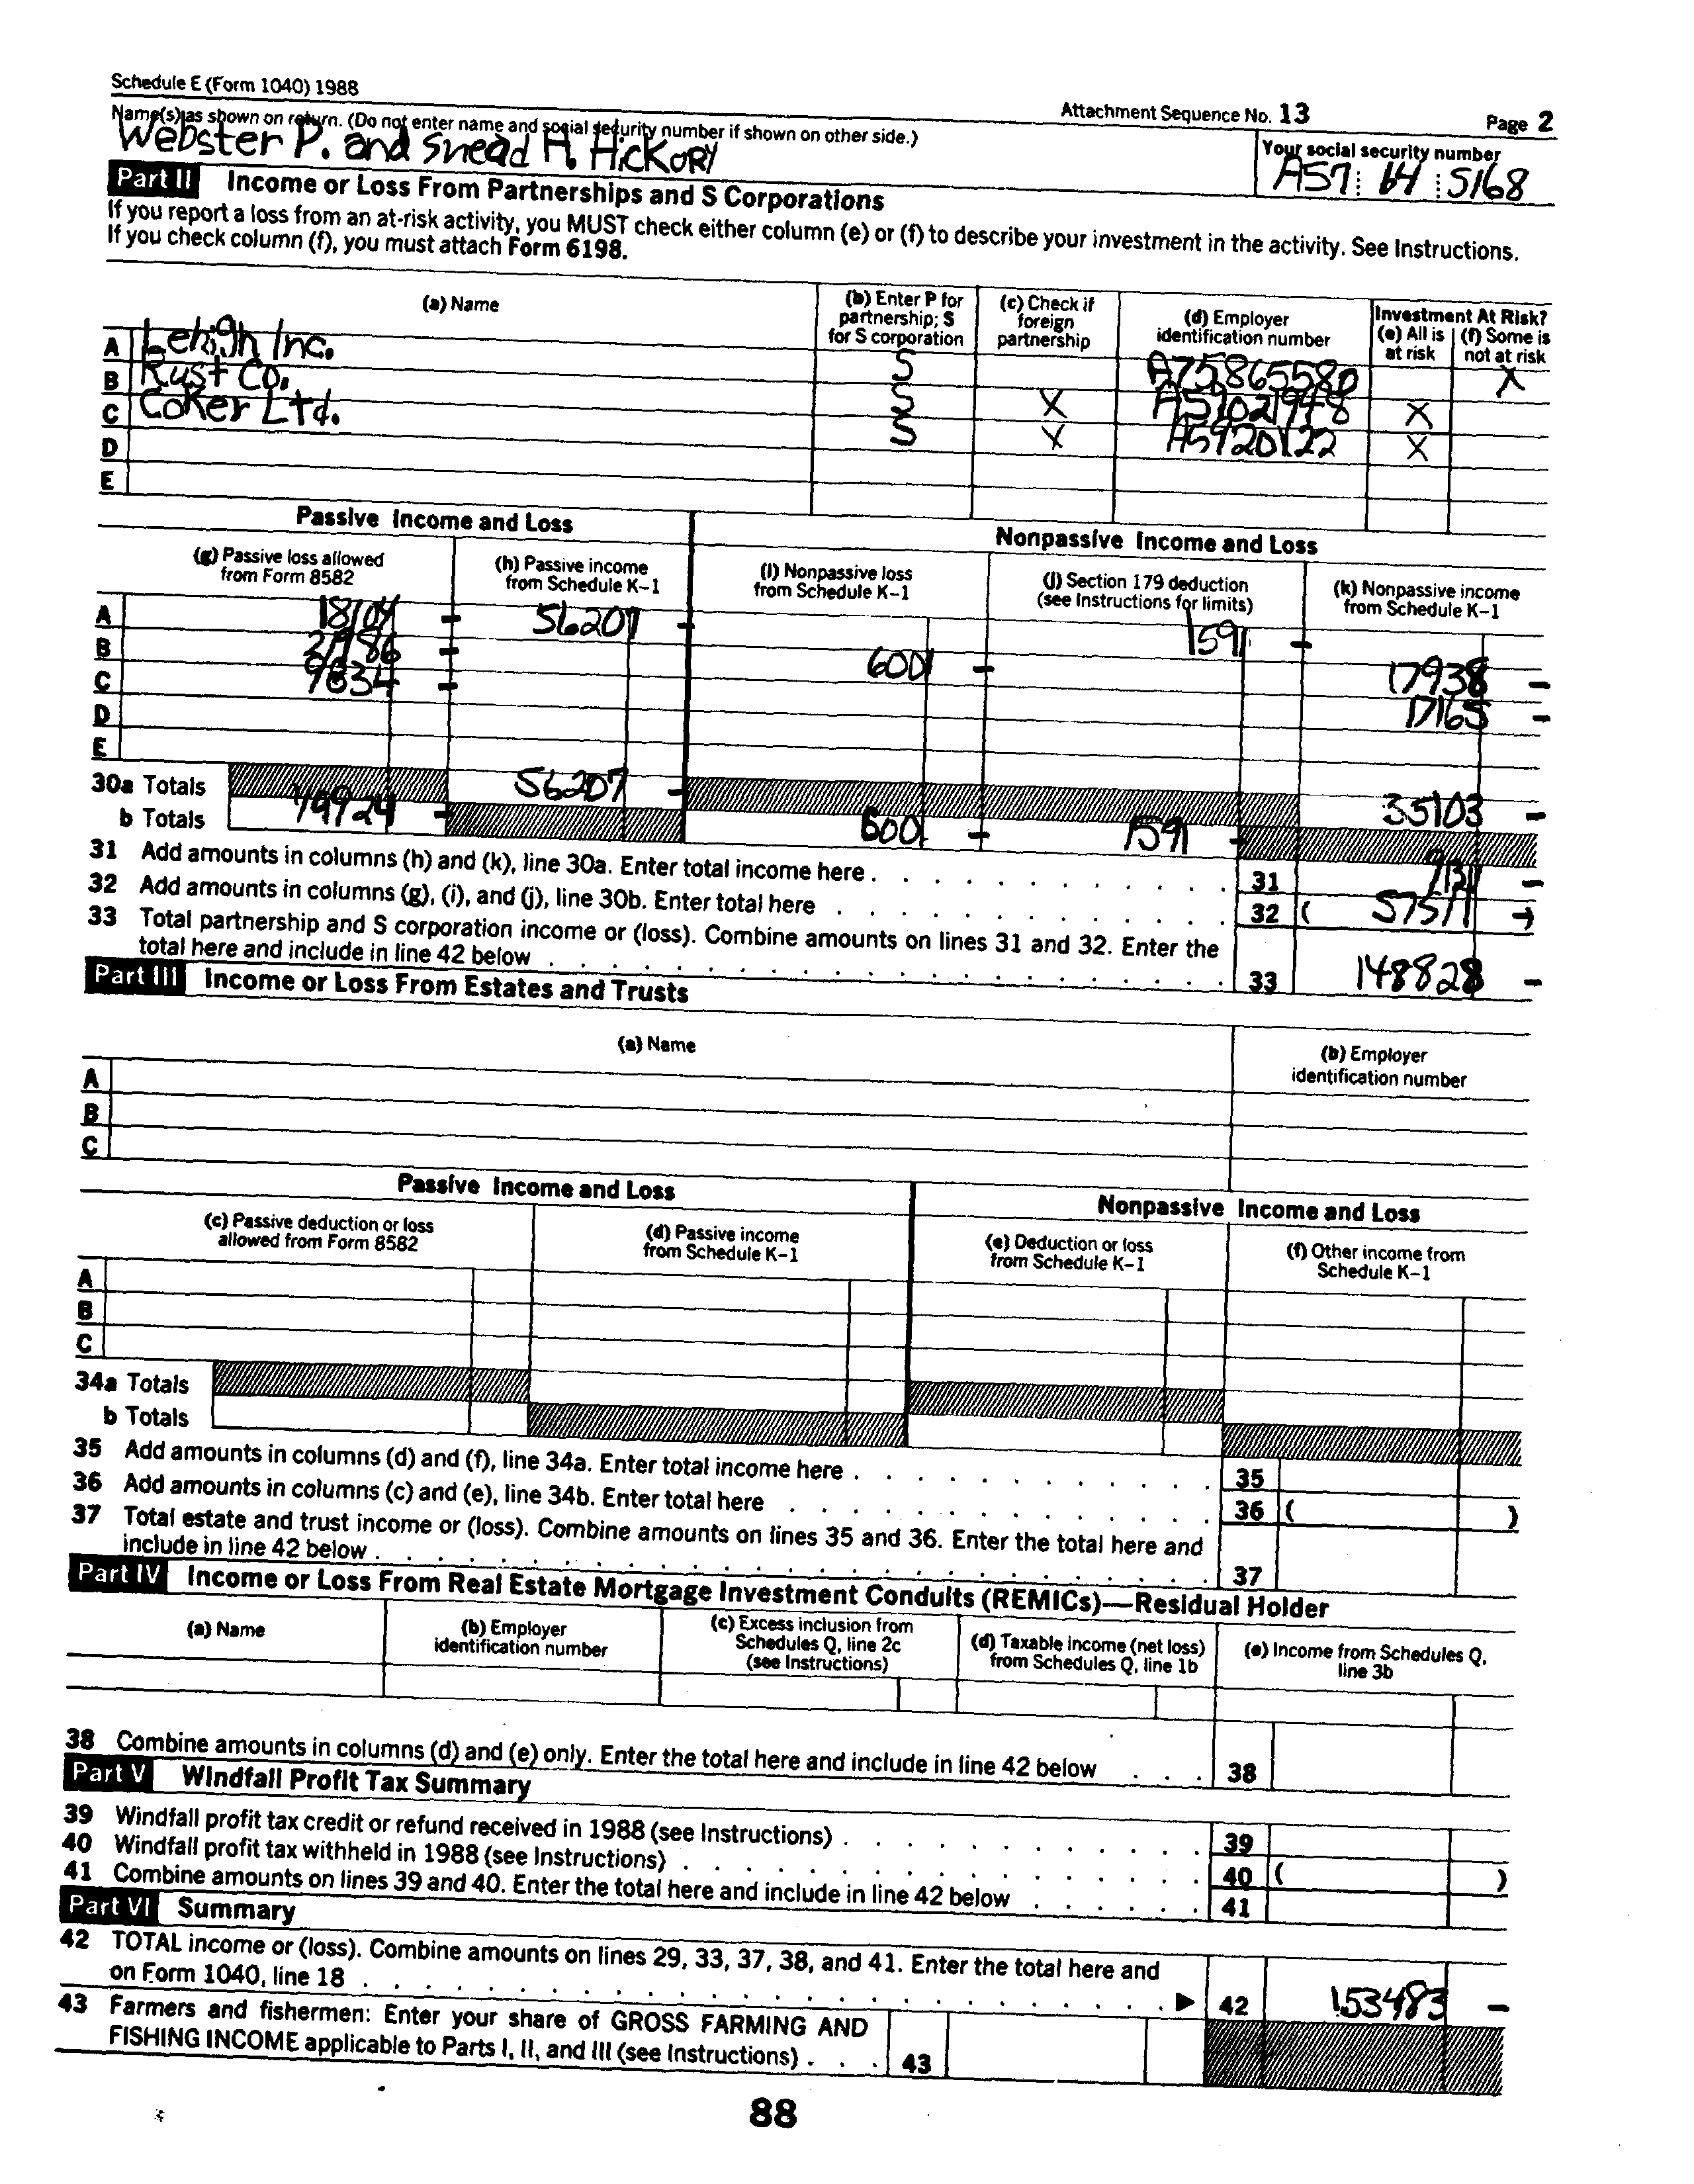 Schedule E (Form 1040) 1988
Attachment Sequence No. 13
Page 2
Name(s) as shown on return. (Do not enter name and social security number if shown on other side.)
Your social security number
Webster P. and Snead H. HicKoRY
A57 64 5168
Part II Income or Loss From Partnerships and S Corporations
If you report a loss from an at-risk activity, you MUST check either column (e) or (f) to describe your investment in the activity. See Instructions.
If you check column (f), you must attach Form 6198.
(a) Name
(b) Enter P for partnership; S for S corporation
(c) Check if foreign partnership
(d) Employer identification number
Investment At Risk?
(e) All is at risk
(f) Some is not at risk
A Lehigh Inc. S A75865580 X
B Rust Co. S X A51021948 X
C Coker Ltd. S X A5920122 X
D
E
Passive Income and Loss
Nonpassive Income and Loss
(g) Passive loss allowed from Form 8582
(h) Passive income from Schedule K-1
(i) Nonpassive loss from Schedule K-1
(j) Section 179 deduction (see Instructions for limits)
(k) Nonpassive income from Schedule K-1
A 18104 - 56207 - 1591 -
B 21986 - 600 - 17938 -
C 9834 - 17165 -
D
E
30a Totals 56207 - 35103 -
b Totals 49924 - 600 - 1591 -
31 Add amounts in columns (h) and (k), line 30a. Enter total income here . 31 -
32 Add amounts in columns (g), (i), and (j), line 30b. Enter total here . 32 ( 57511 )
33 Total partnership and S corporation income or (loss). Combine amounts on lines 31 and 32. Enter the
total here and include in line 42 below . 33 148828 -
Part III Income or Loss From Estates and Trusts
(a) Name
(b) Employer identification number
A
B
C
Passive Income and Loss
Nonpassive Income and Loss
(c) Passive deduction or loss allowed from Form 8582
(d) Passive income from Schedule K-1
(e) Deduction or loss from Schedule K-1
(f) Other income from Schedule K-1
A
B
C
34a Totals
b Totals
35 Add amounts in columns (d) and (f), line 34a. Enter total income here . 35
36 Add amounts in columns (c) and (e), line 34b. Enter total here . 36 ( )
37 Total estate and trust income or (loss). Combine amounts on lines 35 and 36. Enter the total here and
include in line 42 below . 37
Part IV Income or Loss From Real Estate Mortgage Investment Conduits (REMICs)—Residual Holder
(a) Name
(b) Employer identification number
(c) Excess inclusion from Schedules Q, line 2c (see Instructions)
(d) Taxable income (net loss) from Schedules Q, line 1b
(e) Income from Schedules Q, line 3b
38 Combine amounts in columns (d) and (e) only. Enter the total here and include in line 42 below . . . 38
Part V Windfall Profit Tax Summary
39 Windfall profit tax credit or refund received in 1988 (see Instructions) . 39
40 Windfall profit tax withheld in 1988 (see Instructions) . 40 ( )
41 Combine amounts on lines 39 and 40. Enter the total here and include in line 42 below . 41
Part VI Summary
42 TOTAL income or (loss). Combine amounts on lines 29, 33, 37, 38, and 41. Enter the total here and
on Form 1040, line 18 . ▶ 42 153483 -
43 Farmers and fishermen: Enter your share of GROSS FARMING AND
FISHING INCOME applicable to Parts I, II, and III (see Instructions) . . . 43
88